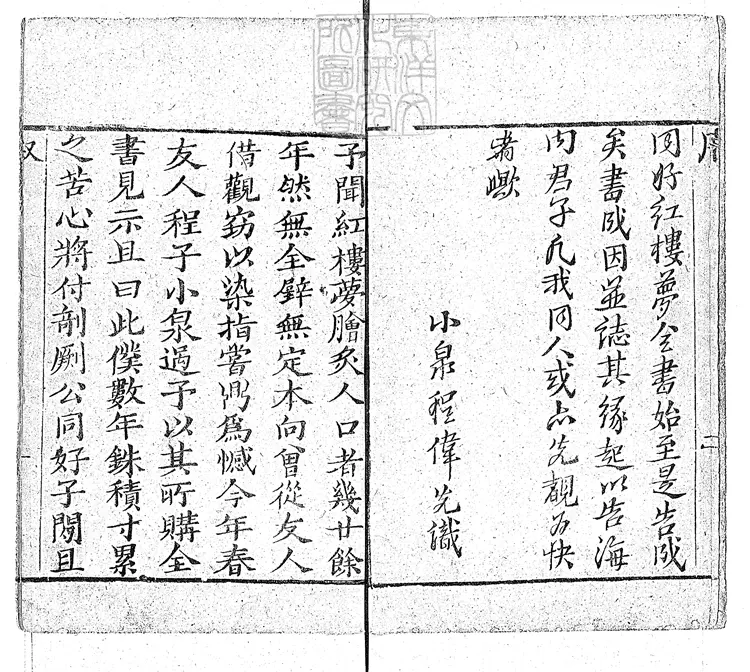 東洋文
化研究
所圖書
序
同好紅樓夢全書始至是告成
矣書成因並誌其緣起以告海
内君子凡我同人或亦先覩爲快
者歟
小泉程偉元識
二
予聞紅樓夢膾炙人口者幾廿餘
年然無全璧無定本向曾從友人
借觀竊以染指嘗鼎爲憾今年春
友人程子小泉過予以其所購全
書見示且曰此僕數年銖積寸累
之苦心將付剞劂公同好子閒且
叙
一